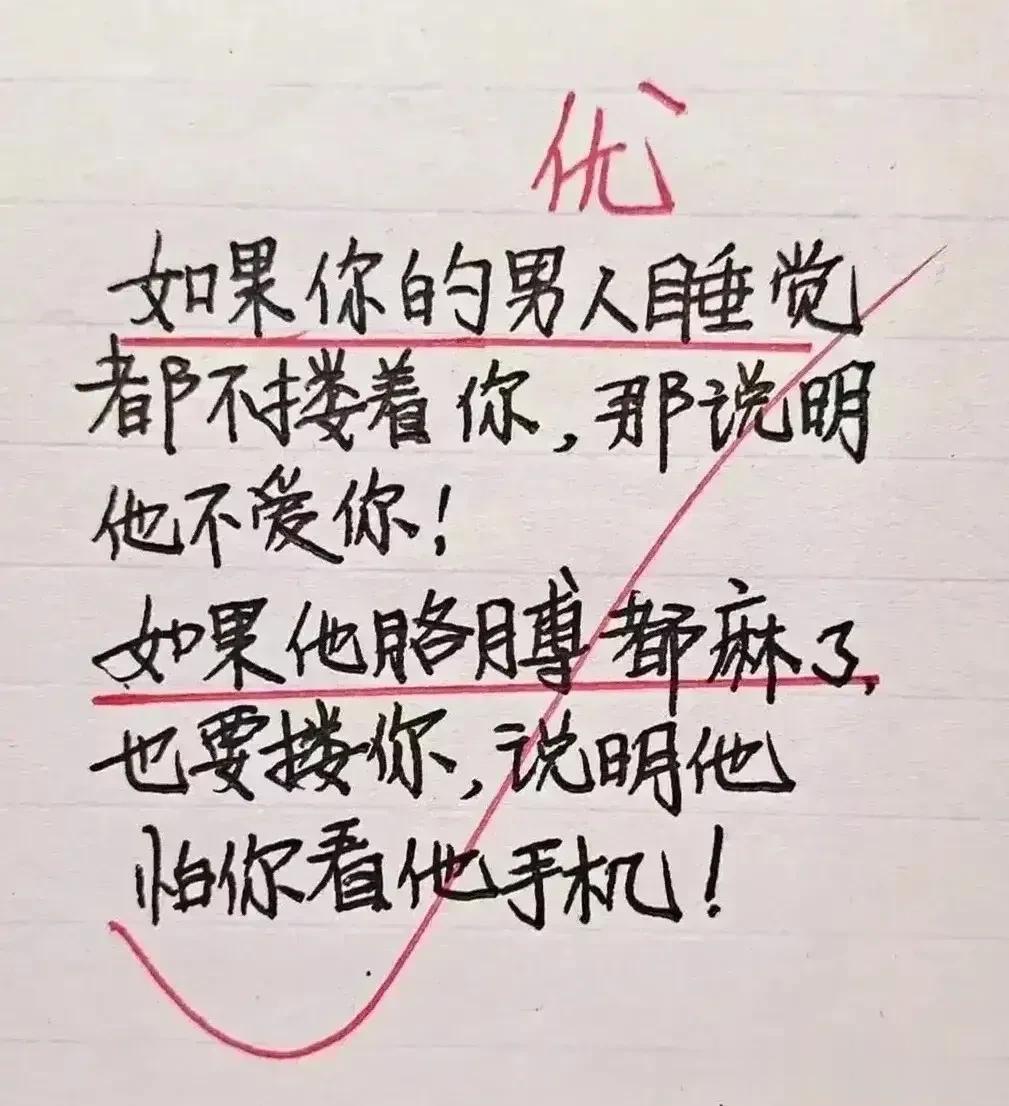 优
如果你的男人睡觉
都不搂着你,那说明
他不爱你!
如果他胳膊都麻了,
也要搂你,说明他
怕你看他手机!